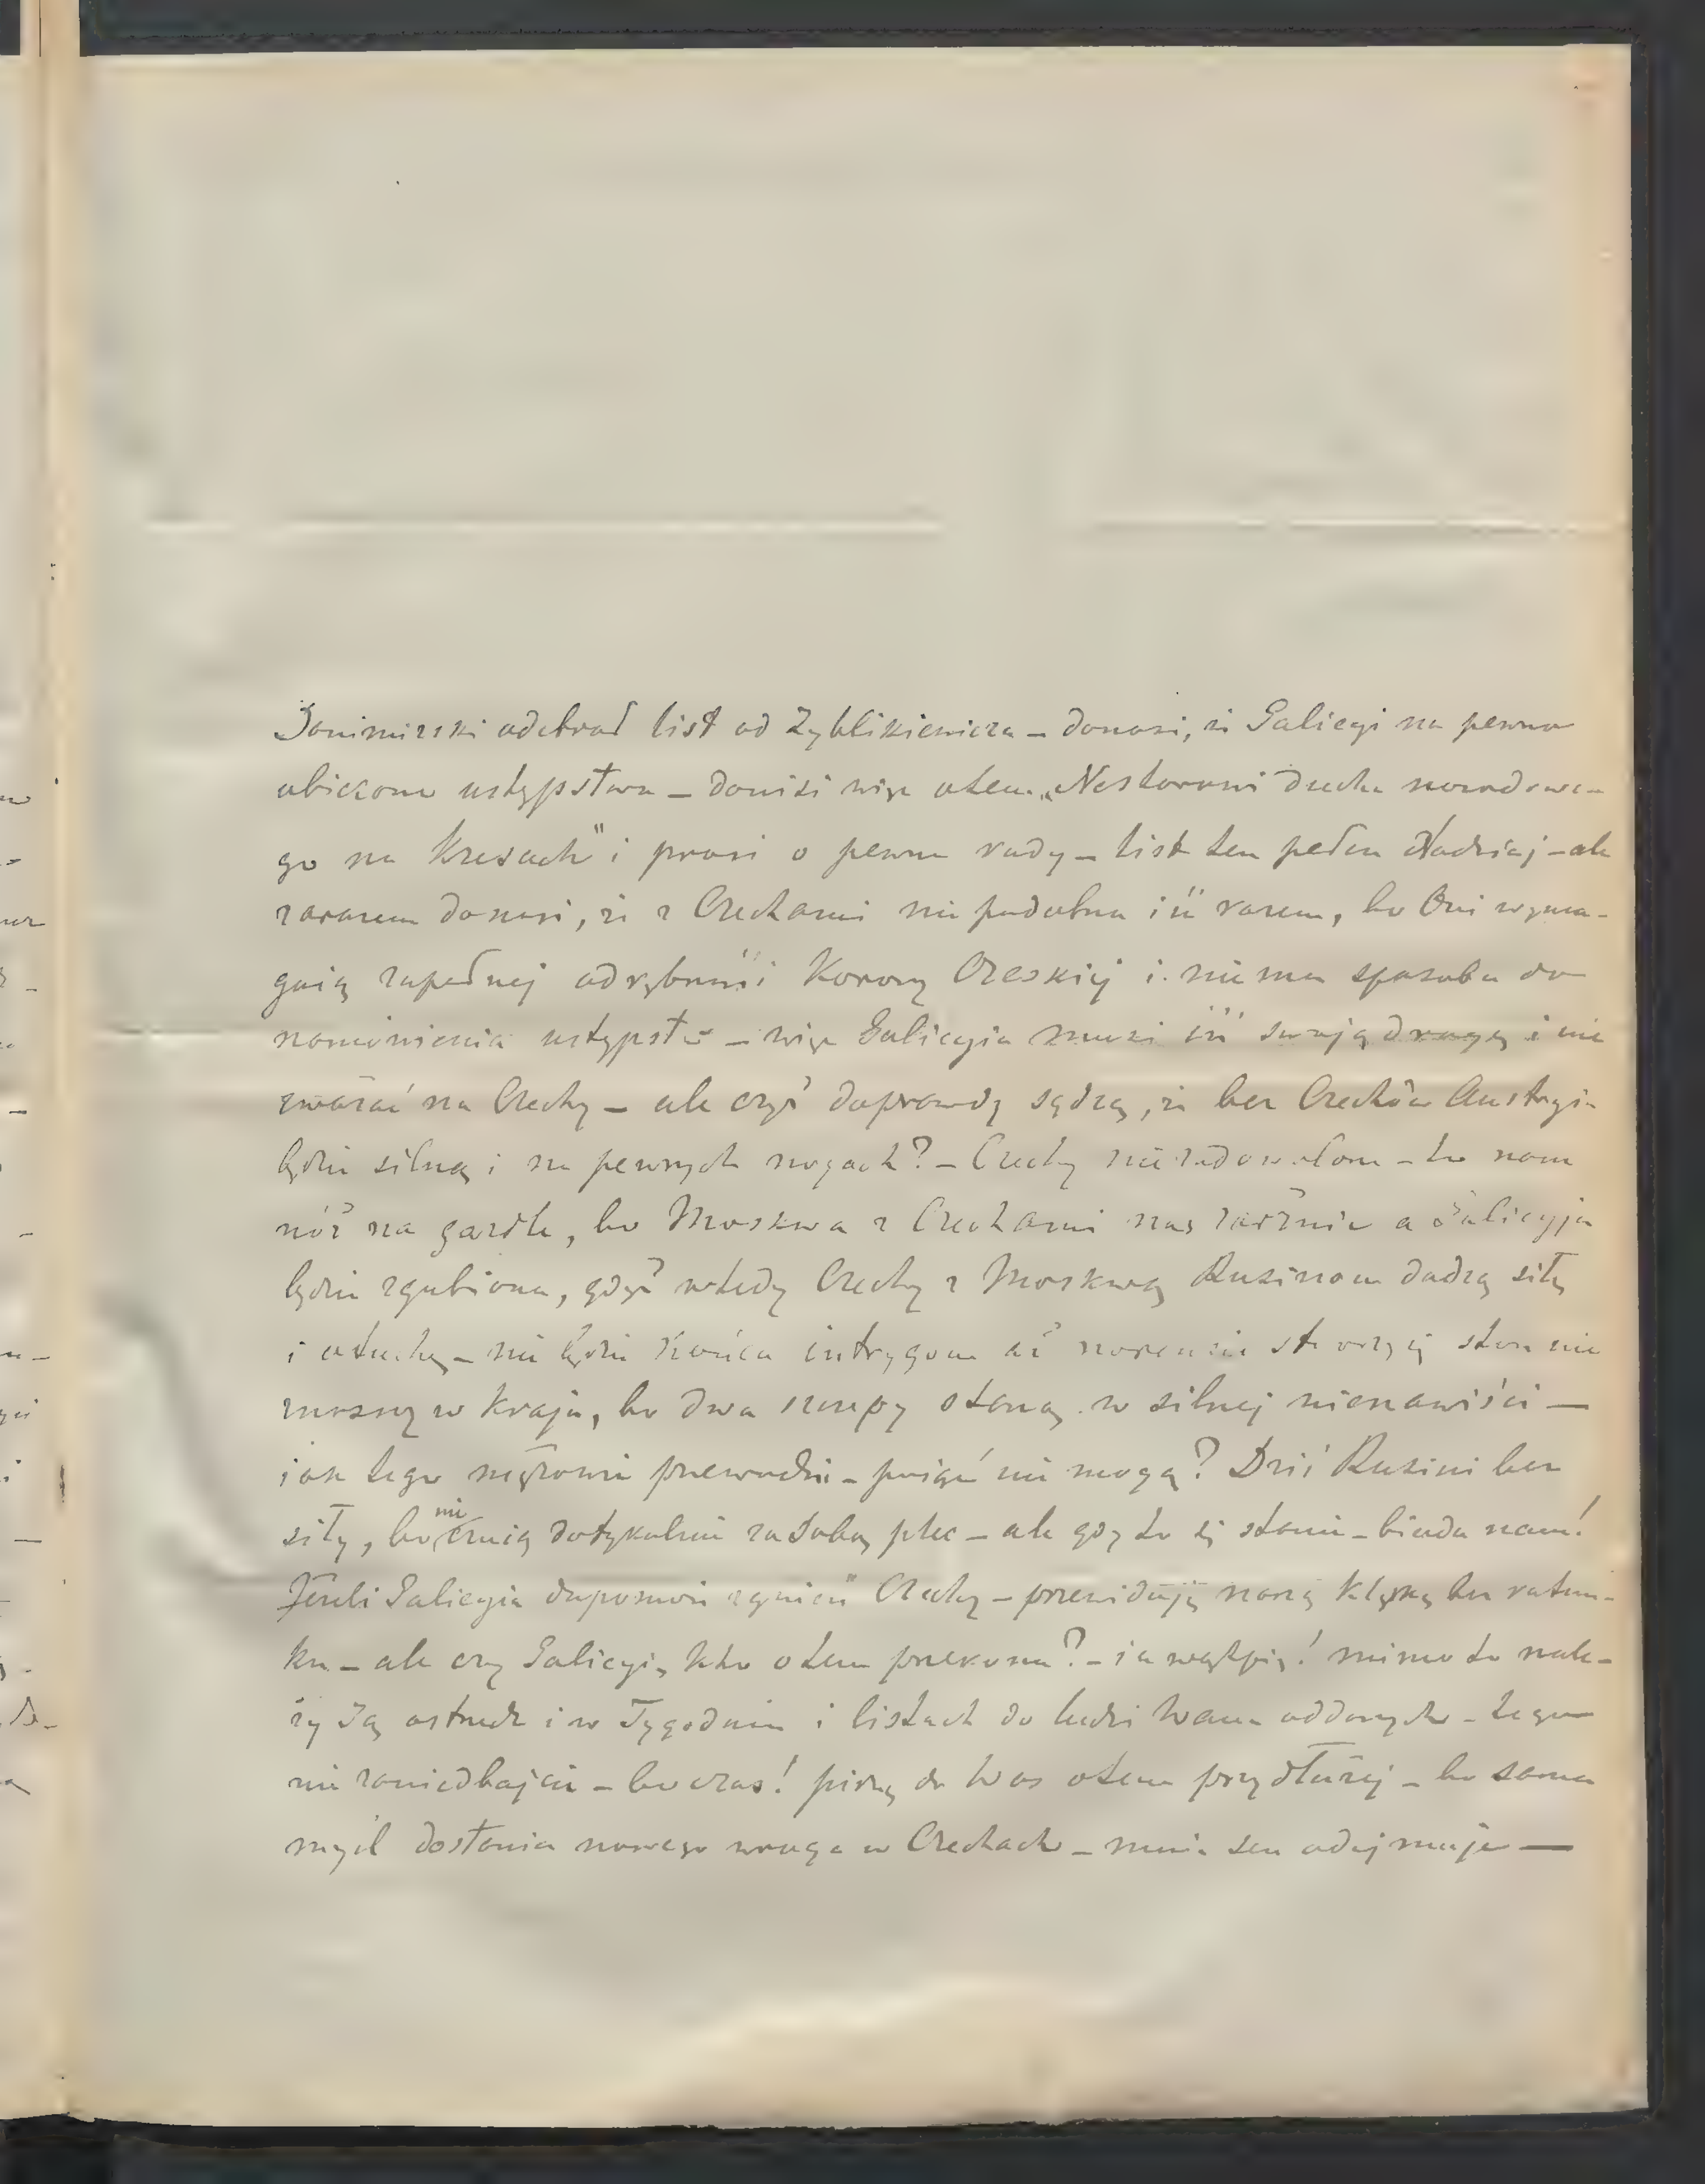 Donimirski odebrał list od Zyblikiewicza – donosi, że Galicyi na pewno
obiecono ustępstwa – donosi więc otem „Nestorowi ducha narodowe-
go na Kresach" i prosi o pewne rady – list ten pełen nadziej – ale
zarazem donosi, że z Czechami nie podobna iść razem, bo Oni wyma-
gaią zupełnej odrębności Korony Czeskiej i niema sposobu do
namówienia ustępstw – więc Galicyia musi iść swoją drogą i nie
zważać na Czechy – ale czyż doprawdy sądzą, że bez Czechów Austryia
będzie silną i na pewnych nogach? – Czechy niezadowolone – to nam
nóż na gardle, bo Moskwa z Czechami nas zarżnie a Galicyja
będzie zgubiona, gdyż wtedy Czechy z Moskwą Rusinom dadzą siłę
i otuchę – nie będzie końca intrygom aż nareszcie stworzą stan nie
znośny w kraju, bo dwa szczepy staną w silnej nienawiści –
iak tego mężowie przewodni – pojąć nie mogą? Dziś Rusini bez
siły, bo nie czują dotykalnie za sobą plec – ale gdy to się stanie – biada nam!
Jeżeli Galicyia dopomoże zgnieść Czechy – przewiduję naszą klęskę bez ratun-
ku – ale czy Galicyię kto otem przekona? – ia wątpię! mimo to nale-
ży Ją ostrzedz i w Tygodniu i listach do ludzi Wam oddanych – tego
nie zaniedbajcie – bo czas! piszę do Was otem przydłużej – bo sama
myśl dostania nowego wroga w Czechach – mnie sen odejmuje –